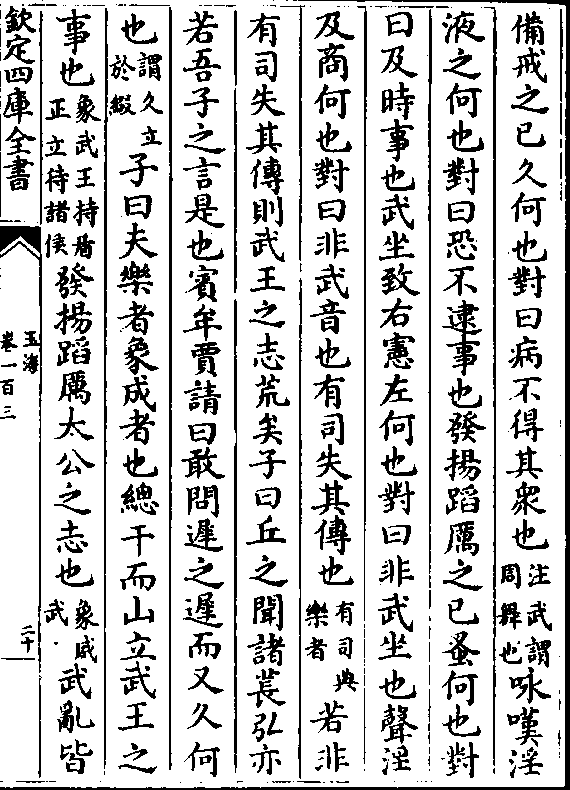 備戒之已久何也對曰病不得其衆也注武謂周舞也咏嘆淫
液之何也對曰恐不逮事也發揚蹈厲之已蚤何也對
曰及時事也武坐致右憲左何也對曰非武坐也聲淫
及商何也對曰非武音也有司失其傳也有司典樂者若非
有司失其傳則武王之志荒矣子曰丘之聞諸萇弘亦
若吾子之言是也賓牟賈請曰敢問遲之遲而又久何
也謂久立於綴子曰夫樂者象成者也總干而山立武王之
事也象武王持盾正立待諸侯發揚蹈厲太公之志也象威武武亂皆
欽定四庫全書
玉海
卷一百三
二十